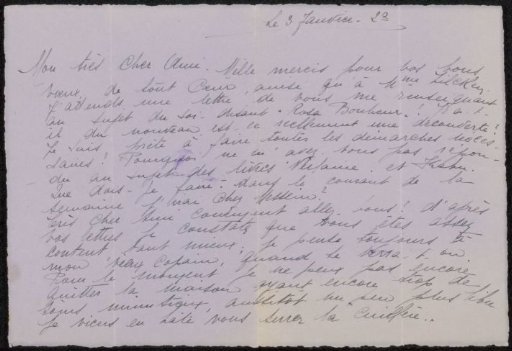 Le 3 Janvier. 22
Mon très Cher Ami. Mille mercis pour vos bons
vœux, de tout Cœur, ainsi qu'à Mme
J'attends une lettre de vous me renseignant
au sujet du soi-disant "Rosa Bonheur"! Y a t
il du nouveau est-ce réellement une découverte!
Je suis prête à faire toutes les démarches néces-
saires! Pourquoi ne m'avez vous pas répon-
du au sujet des livres et
Que dois-je faire? dans le courant de la
semaine j'irai chez
très cher Ami comment allez-vous! d'après
vos lettres je constate que vous êtes assez
content tant mieux; je pense toujours à
mon vieux Copain, quand le verra t-on
Pour le moment je ne peux pas encore
quitter la maison ayant encore trop de
soins minutieux, aussitôt un peu plus libre
je viens en hâte vous serrer la cuillère..